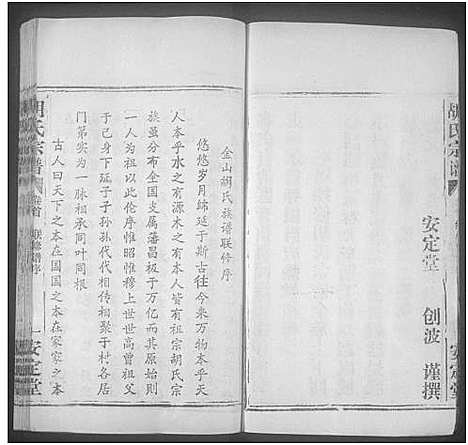 胡氏宗谱
安定堂
创波 谨撰
安定堂
金山胡氏族谱联修序
悠悠岁月绵延于斯古往今来万物本乎天
人本乎水之有源木之有本人皆有祖宗胡氏宗
族虽分布全国支属藩昌极于万亿而其原始则
一人为祖以此伦序惟昭惟穆上世世高曾祖考
于己身下以子孙孙代代相传相聚于村各居
门第实为一脉相承同叶同根
古人曰天下之本在国国之本在家家之本
胡氏宗谱
卷首
联修谱序
一
安定堂